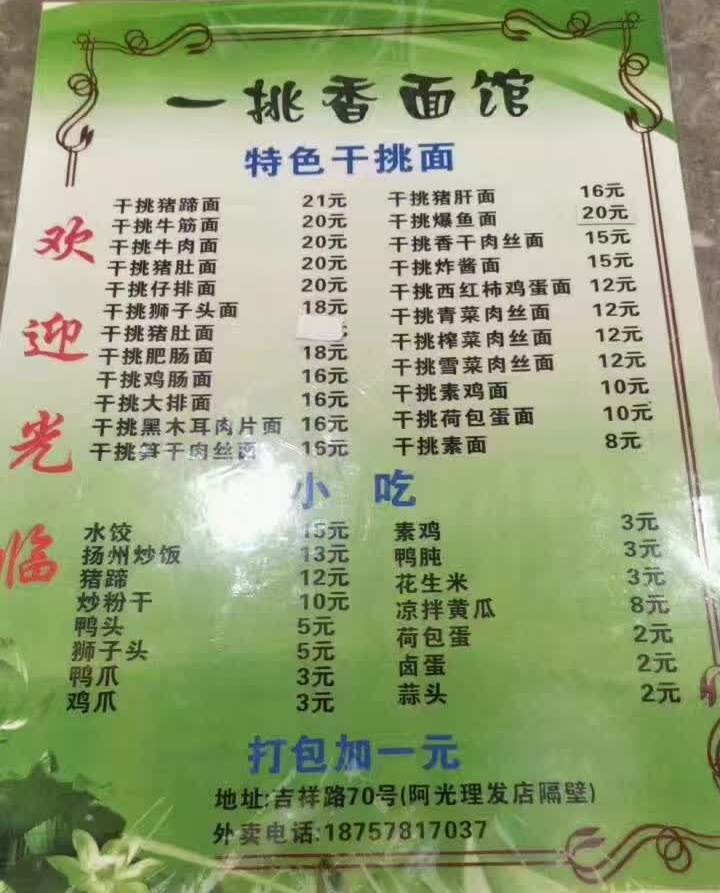 一挑香面馆
特色干挑面
欢迎光临
干挑猪蹄面 21元
干挑牛筋面 20元
干挑牛肉面 20元
干挑猪肚面 20元
干挑仔排面 20元
干挑狮子头面 18元
干挑猪肚面
干挑肥肠面 18元
干挑鸡肠面 16元
干挑大排面 16元
干挑黑木耳肉片面 16元
干挑笋干肉丝面 16元
干挑猪肝面 16元
干挑爆鱼面 20元
干挑香干肉丝面 15元
干挑炸酱面 15元
干挑西红柿鸡蛋面 12元
干挑青菜肉丝面 12元
干挑榨菜肉丝面 12元
干挑雪菜肉丝面 12元
干挑素鸡面 10元
干挑荷包蛋面 10元
干挑素面 8元
小吃
水饺 15元
扬州炒饭 13元
猪蹄 12元
炒粉干 10元
鸭头 5元
狮子头 5元
鸭爪 3元
鸡爪 3元
素鸡 3元
鸭肫 3元
花生米 3元
凉拌黄瓜 8元
荷包蛋 2元
卤蛋 2元
蒜头 2元
打包加一元
地址:吉祥路70号(阿光理发店隔壁)
外卖电话:18757817037